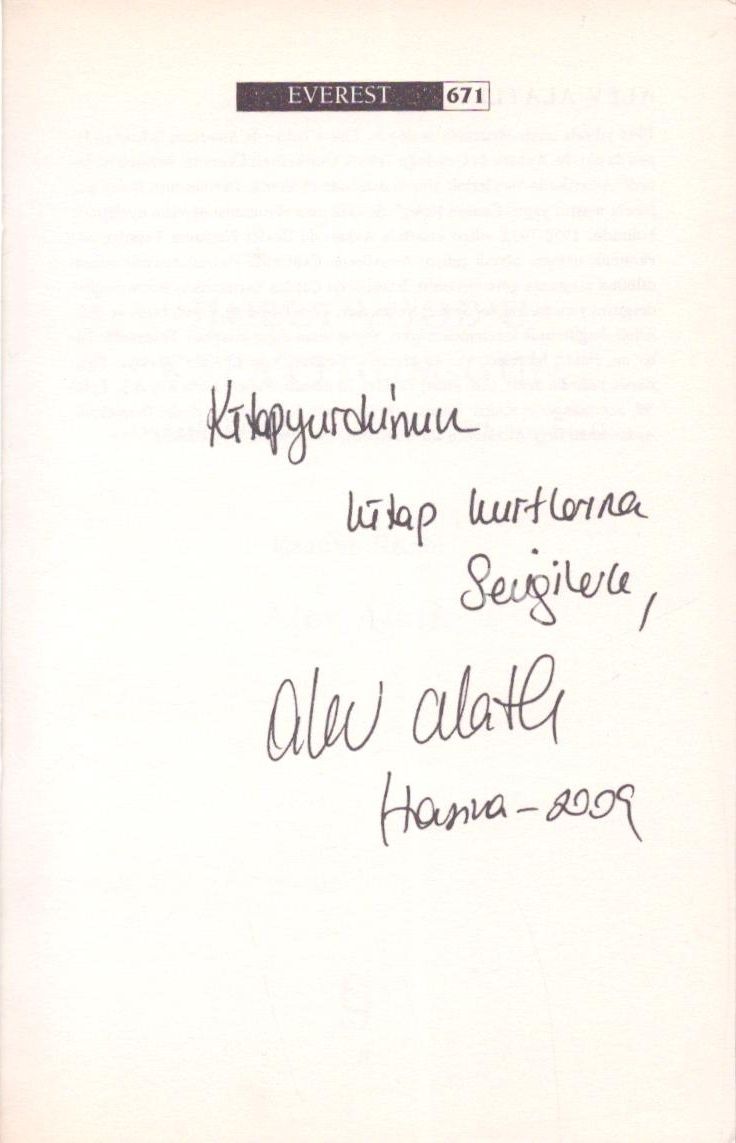 EVEREST 671
Kitapyurdu'nun
kitap kurtlarına
Sevgilerle,
Alev Alatlı
Haziran - 2009